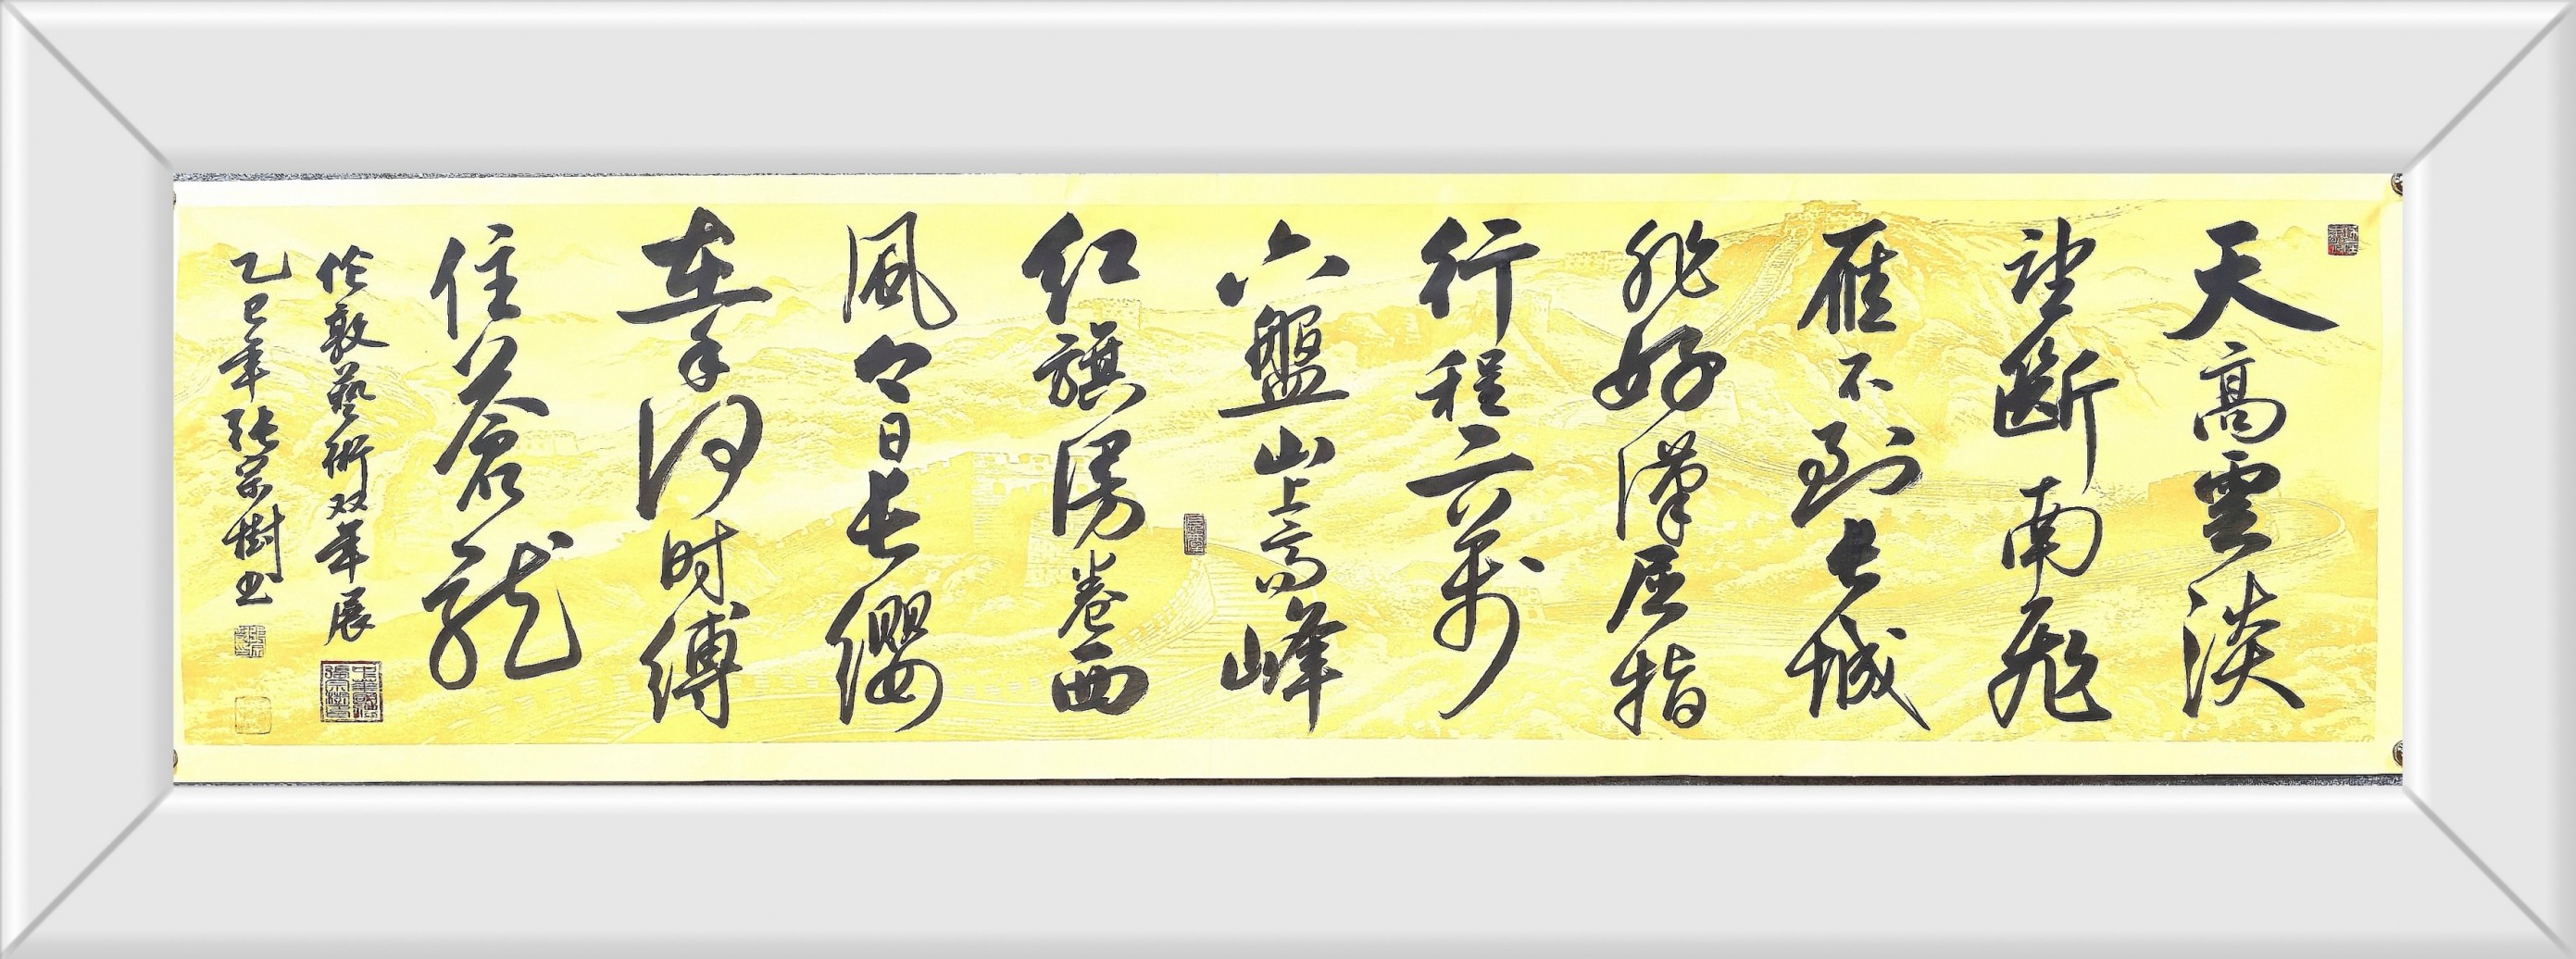 天高雲淡
望斷南飛
雁不到長城
非好漢屈指
行程二萬
六盤山上高峰
红旗漫卷西
風今日長纓
在手何时縛
住蒼龍
伦敦藝術双年展
乙巳年張宗樹书